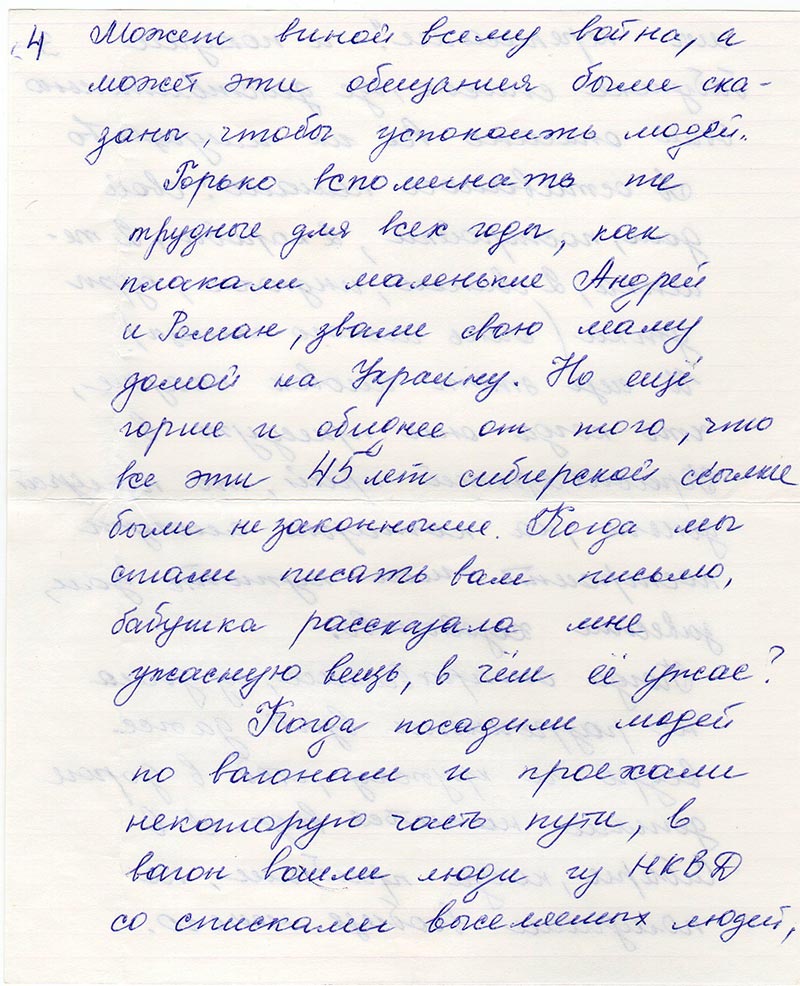 4 Может виной всему война, а
может эти обещания были ска-
заны, чтобы успокоить людей.
Горько вспоминать те
трудные для всех годы, как
плакали маленькие Андрей
и Роман, звали свою маму
домой на Украину. Но ещё
горше и обиднее от того, что
все эти 45 лет сибирской ссылки
были незаконными. Когда мы
стали писать вам письмо,
бабушка рассказала мне
ужасную вещь, в чём её ужас?
Когда посадили людей
по вагонам и проехали
некоторую часть пути, в
вагон вошли люди из НКВД
со списками выселяемых людей,